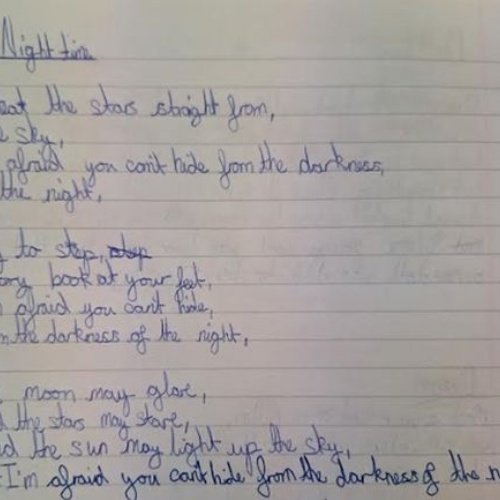 Night time
eat the stars straight from,
sky,
afraid you can't hide from the darkness,
the night,
to step,
book at your feet,
afraid you can't hide,
the darkness of the night,
moon may glare,
the stars may stare,
the sun may light up the sky,
I'm afraid you can't hide from the darkness of the n